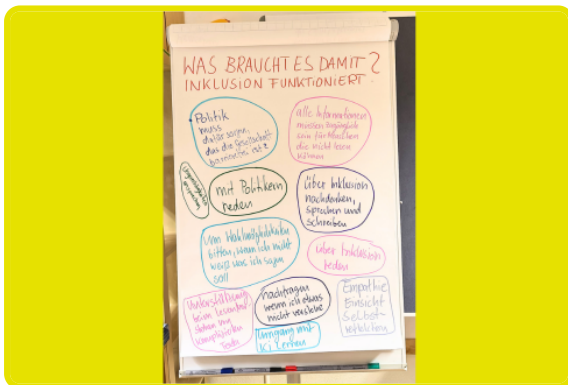 WAS BRAUCHT ES DAMIT
INKLUSION FUNKTIONIERT?
Politik
muss
dafür sorgen,
das die Gesellschaft
barrierefrei ist
alle Informationen
müssen zugänglich
sein für Menschen
die nicht lesen
können
mit Politikern
reden
über Inklusion
nachdenken,
sprechen und
schreiben
um Wahlmöglichkeiten
bitten, wenn ich nicht
weiß was ich sagen
soll
über Inklusion
reden
Unterstützung
beim Lesen und
komplizierten
Texte
nachfragen
wenn ich etwas
nicht verstehe
Empathie
Einsicht
Selbst-
Umgang mit
KI lernen